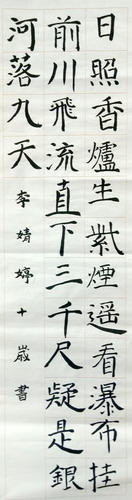 日照香爐生紫煙遥看瀑布挂
前川飛流直下三千尺疑是銀
河落九天
李婧婷十歲書